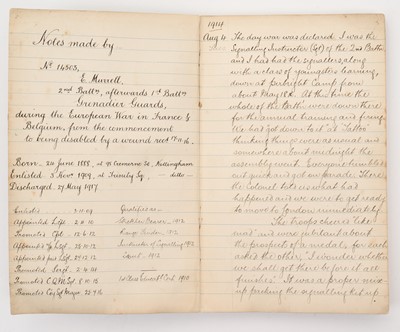 Notes made by
Nº 14503,
E. Murrell.
2nd Battn, afterwards 1st Battn
Grenadier Guards,
during the European War in France &
Belgium, from the commencement
to being disabled by a wound recd
Born - 20 June 1888, at Nottingham
Enlisted 3 Nov 1904, at Trinity Sq, - ditto -
Discharged 27 May 1917
Enlisted 3.11.04
Appointed
Promoted Cpl
Appointed
Appointed
Promoted Sergt
Promoted C.Q.M. Sgt
Promoted Coy Sgt Major
Qualified as
Stretcher Bearer
1912
Instructor of Signalling
1914
Aug 4
The day war was declared I was the
Signalling Instructor (Sgt) of the 2nd Battn
and I had had the signallers, along
with a class of youngsters learning,
down at Pirbright Camp from
about May 18th. At this time the
whole of the Battn were down there
for the annual training and firing.
We had got down to it at "Tattoo"
thinking things were as usual and
somewhere about midnight the
assembly went. Everyone tumbled
out quick and got on parade. There
the Colonel told us what had
happened and we were to get ready
to move to London immediately.
The troops cheered like
mad and were jubilant about
the prospect of a medal, for each
asked the other, "I wonder whether
we shall get there before it all
finishes". It was a proper mix
up packing the signalling kit up